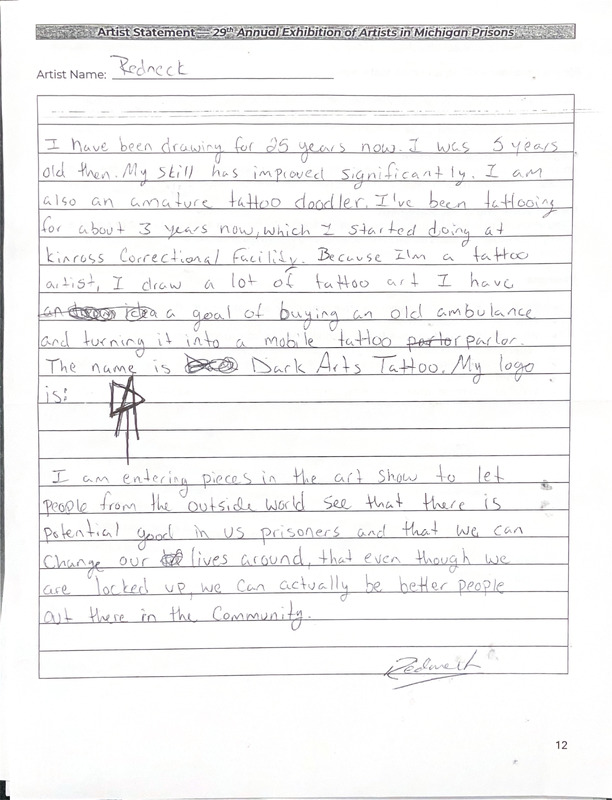 Artist Statement— 29th Annual Exhibition of Artists in Michigan Prisons
Artist Name: Redneck
I have been drawing for 25 years now. I was 5 years
old then. My skill has improved significantly. I am
also an amature tattoo doodler. I've been tattooing
for about 3 years now, which I started doing at
Kinross Correctional Facility. Because I'm a tattoo
artist, I draw a lot of tattoo art I have
an idea a goal of buying an old ambulance
and turning it into a mobile tattoo parlor.
The name is Dark Arts Tattoo. My logo
is:
I am entering pieces in the art show to let
people from the outside world see that there is
potential good in us prisoners and that we can
change our lives around, that even though we
are locked up, we can actually be better people
out there in the community.
Redneck
12